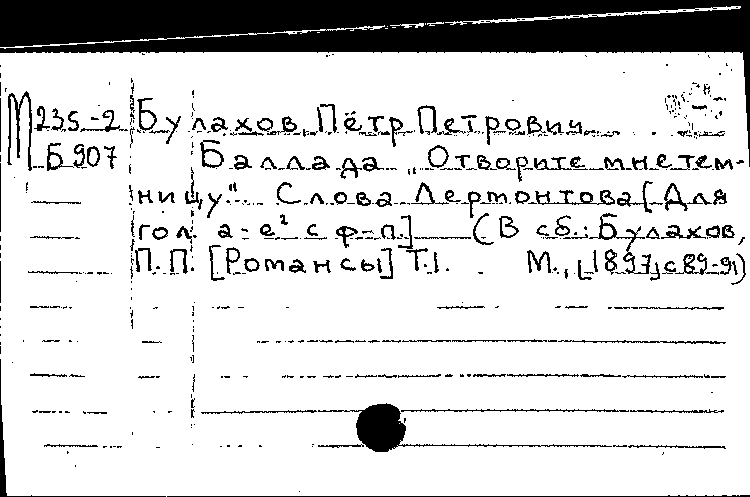 М 235-2 Булахов, Пётр Петрович
Б 907 Баллада „Отворите мне тем-
ницу". Слова Лермонтова [Для
гол. а-е² с ф-п.] (В сб.: Булахов,
П. П. [Романсы] Т.1. М., [1897] с 89-91)